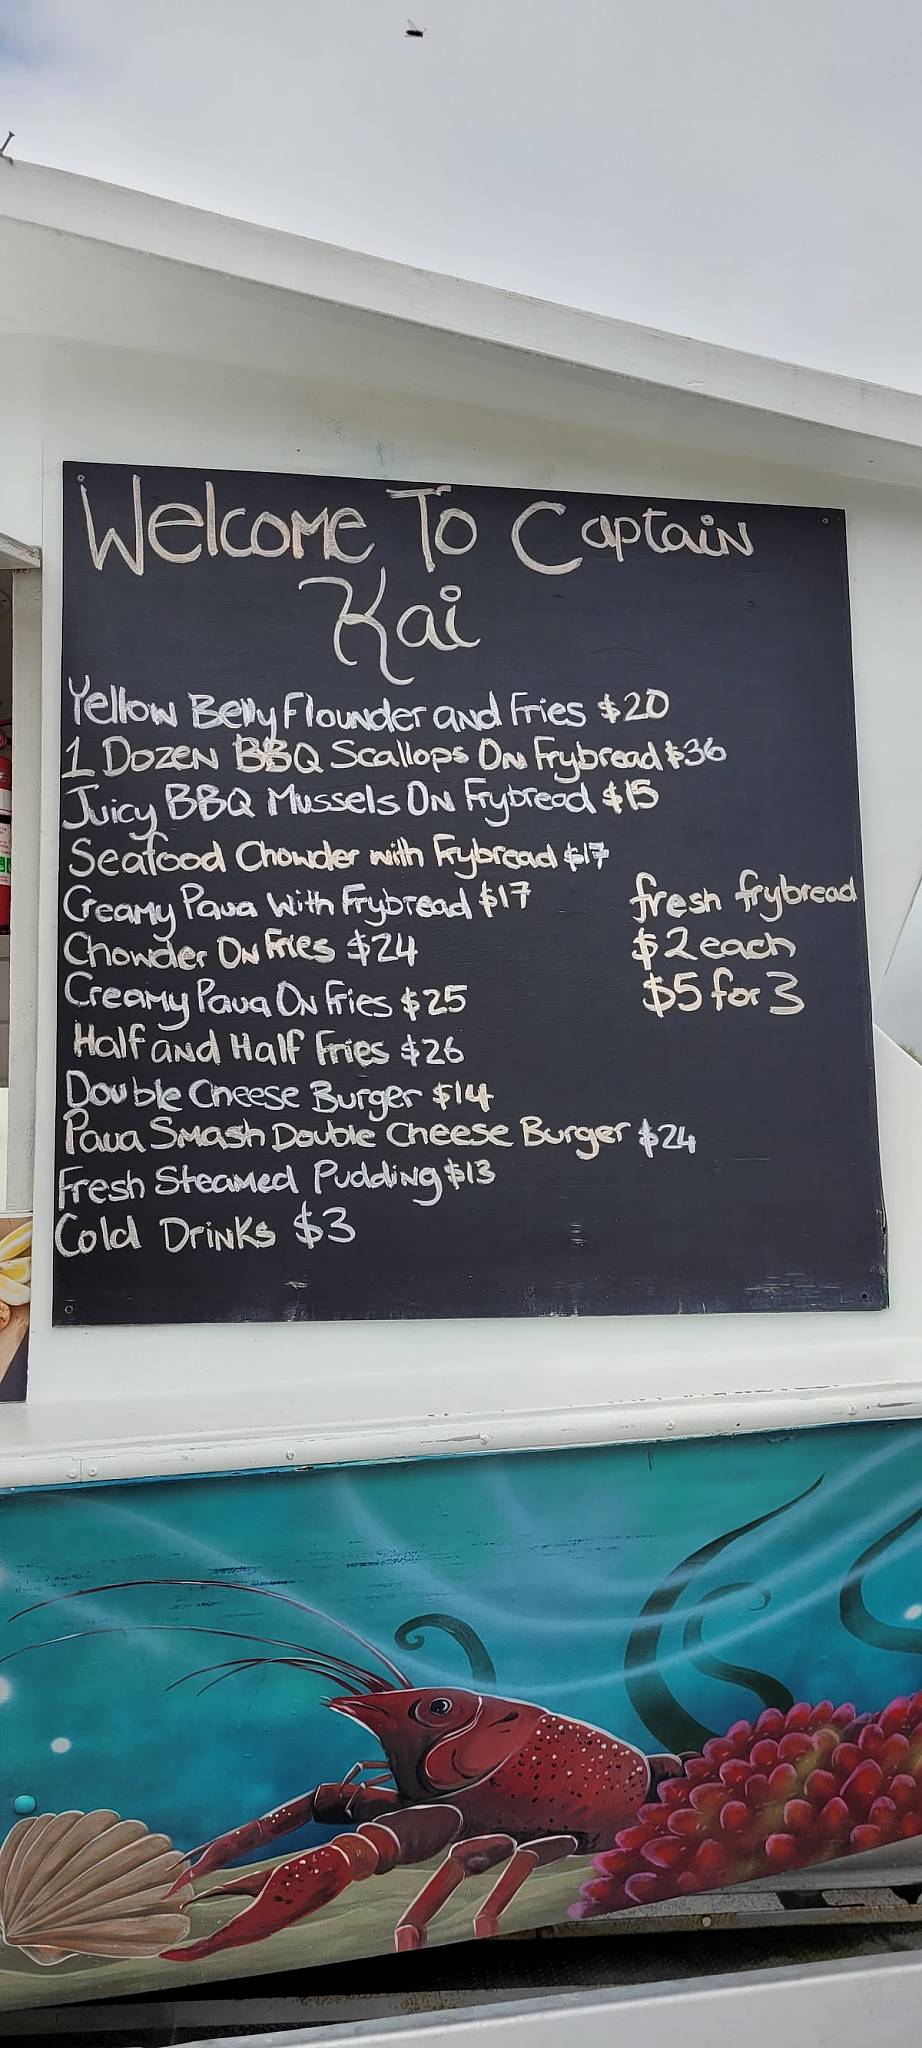 Welcome To Captain
Kai
Yellow Belly Flounder and Fries $20
1 Dozen BBQ Scallops On Frybread $36
Juicy BBQ Mussels On Frybread $15
Seafood Chowder with Frybread $17
Creamy Paua With Frybread $17
Chowder On Fries $24
Creamy Paua On Fries $25
Half and Half Fries $26
Double Cheese Burger $14
Paua Smash Double Cheese Burger $24
Fresh Steamed Pudding $13
Cold Drinks $3
fresh frybread
$2 each
$5 for 3